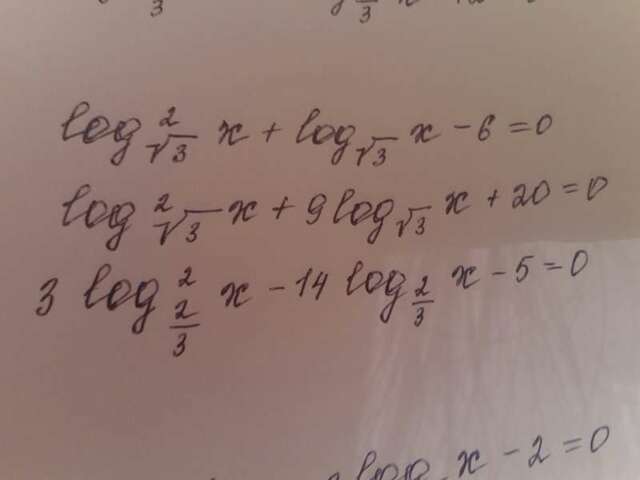 log²_√3 x + log_√3 x - 6 = 0
log²_√3 x + 9 log_√3 x + 20 = 0
3 log²_2/3 x - 14 log_2/3 x - 5 = 0
log x - 2 = 0